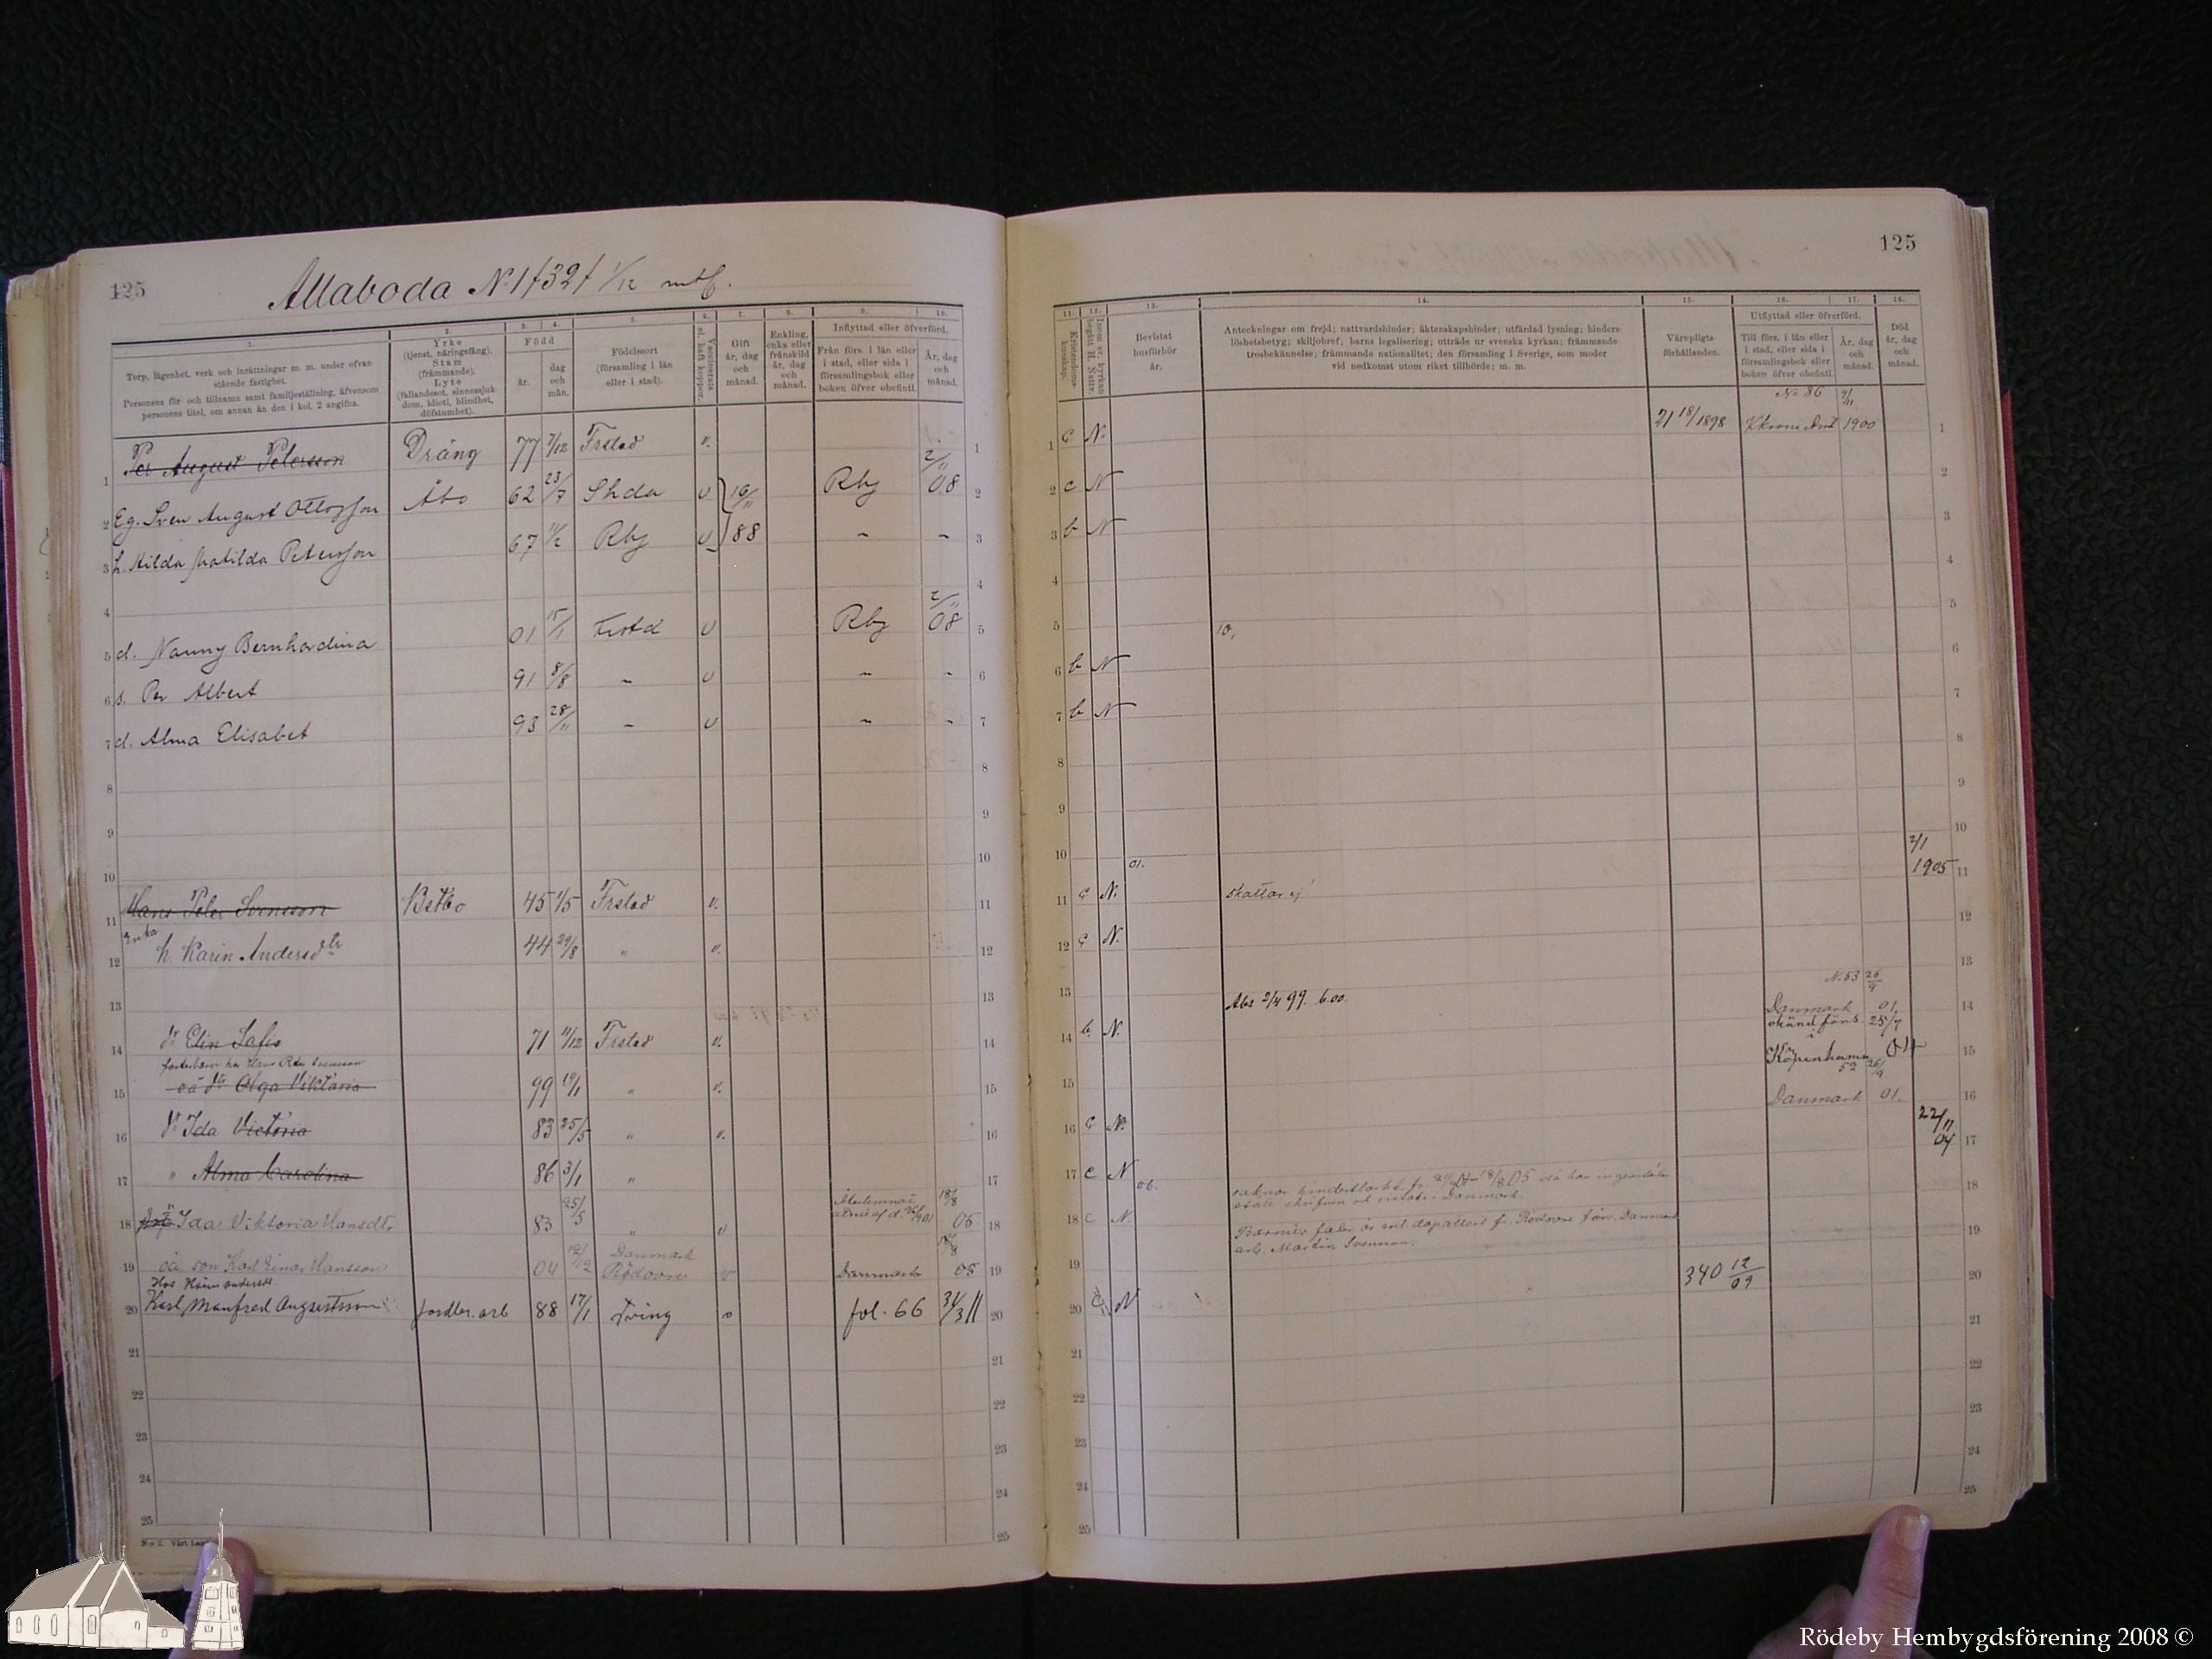 125
Allaboda N 1 f 32 f 1/12 mtl.
1.
Torp, lägenhet, verk och inrättningar m. m. under ofvan-
stående fastighet.
Personens för- och tillnamn samt familjeställning, äfvensom
personens titel, om annan än den i kol. 2 angifna.
2.
Yrke
(tjenst, näringsfång).
Stam
(främmande).
Lyte
(fallandesot, sinnessjuk-
dom, idioti, blindhet,
döfstumhet).
3. 4.
Född
år.
dag
och
mån.
5.
Födelseort
(församling i län
eller i stad).
6.
Vaccinerats
el. haft koppor.
7.
Gift
år, dag
och
månad.
8.
Enkling,
enka eller
frånskild
år, dag
och
månad.
9. 10.
Inflyttad eller öfverförd.
Från förs. i län eller
i stad, eller sida i
församlingsbok eller
boken öfver obefintl.
År, dag
och
månad.
1 Per August Petersson Dräng 77 7/12 Frstad v. 1
2 Eg. Sven August Ottosson Åbo 62 23/7 Shda v 16/11 Rby 2/11 08 2
3 h. Hilda Matilda Petersson 67 11/2 Rby v 88 - - 3
4 4
5 d. Nanny Bernhardina 01 15/1 Frstd v Rby 2/11 08 5
6 s. Per Albert 91 8/8 - v - - 6
7 d. Alma Elisabet 93 28/11 - v - - 7
8 8
9 9
10 10
11 Hans Peter Svensson 45 1/5 Frstad v. 11
Enka
12 h Karin Andersdtr 44 29/8 " v. 12
13 13
14 dr Elin Sofia 71 11/12 Frstad v. 14
fosterbarn hos Hans Peter Svensson
15 oä dr Olga Viktoria 99 19/1 " v. 15
16 dr Ida Victoria 83 25/5 " v. 16
17 " Alma Carolina 86 3/1 " 17
18 Ida Viktoria Hansdtr 83 25/5 " v 18/8 05 18
19 oä son Karl Einar Hansson 04 12/12 Danmark Rödovre v Danmark 18/8 05 19
Hos Karin Andersdr
20 Karl Manfred Augustsson jordbr. arb 88 17/1 Tving v fol. 66 31/3 11 20
21 21
22 22
23 23
24 24
25 25
125
11.
Kristendoms-
kunskap.
12.
Inom sv. kyrkan
begått H. Nattv.
13.
Bevistat
husförhör
år.
14.
Anteckningar om frejd; nattvardshinder; äktenskapshinder; utfärdad lysning; hinders-
löshetsbetyg; skiljobref; barns legalisering; utträde ur svenska kyrkan; främmande
trosbekännelse; främmande nationalitet; den församling i Sverige, som moder
vid nedkomst utom riket tillhörde; m. m.
15.
Värnpligts
förhållanden.
16. 17.
Utflyttad eller öfverförd.
Till förs. i län eller
i stad, eller sida i
församlingsbok eller
boken öfver obefintl.
År, dag
och
månad.
18.
Död
år, dag
och
månad.
No 86
1 c N. 21 18/1898 1900 1
2 c N 2
3 b N 3
4 4
5 10. 5
6 b N 6
7 b N 7
8 8
9 9
10 01. 10
2/1
11 c N. skattar ej! 1905 11
12 c N. 12
13 N. 53 26/9 13
Abs 2/4 99. b.00.
14 b N. Danmark 01. 14
okänd förs 25/7
i
15 Köpenhamn 04 15
52 26/9
Danmark 01. 16
16 c N. 22/11
04 17
17 c N 06. 18
18 c N. 19
arb. Martin Svensson.
19 340 12/09 20
20 c N 21
21 22
22 23
23 24
24 25
25
Rödeby Hembygdsförening 2008 ©